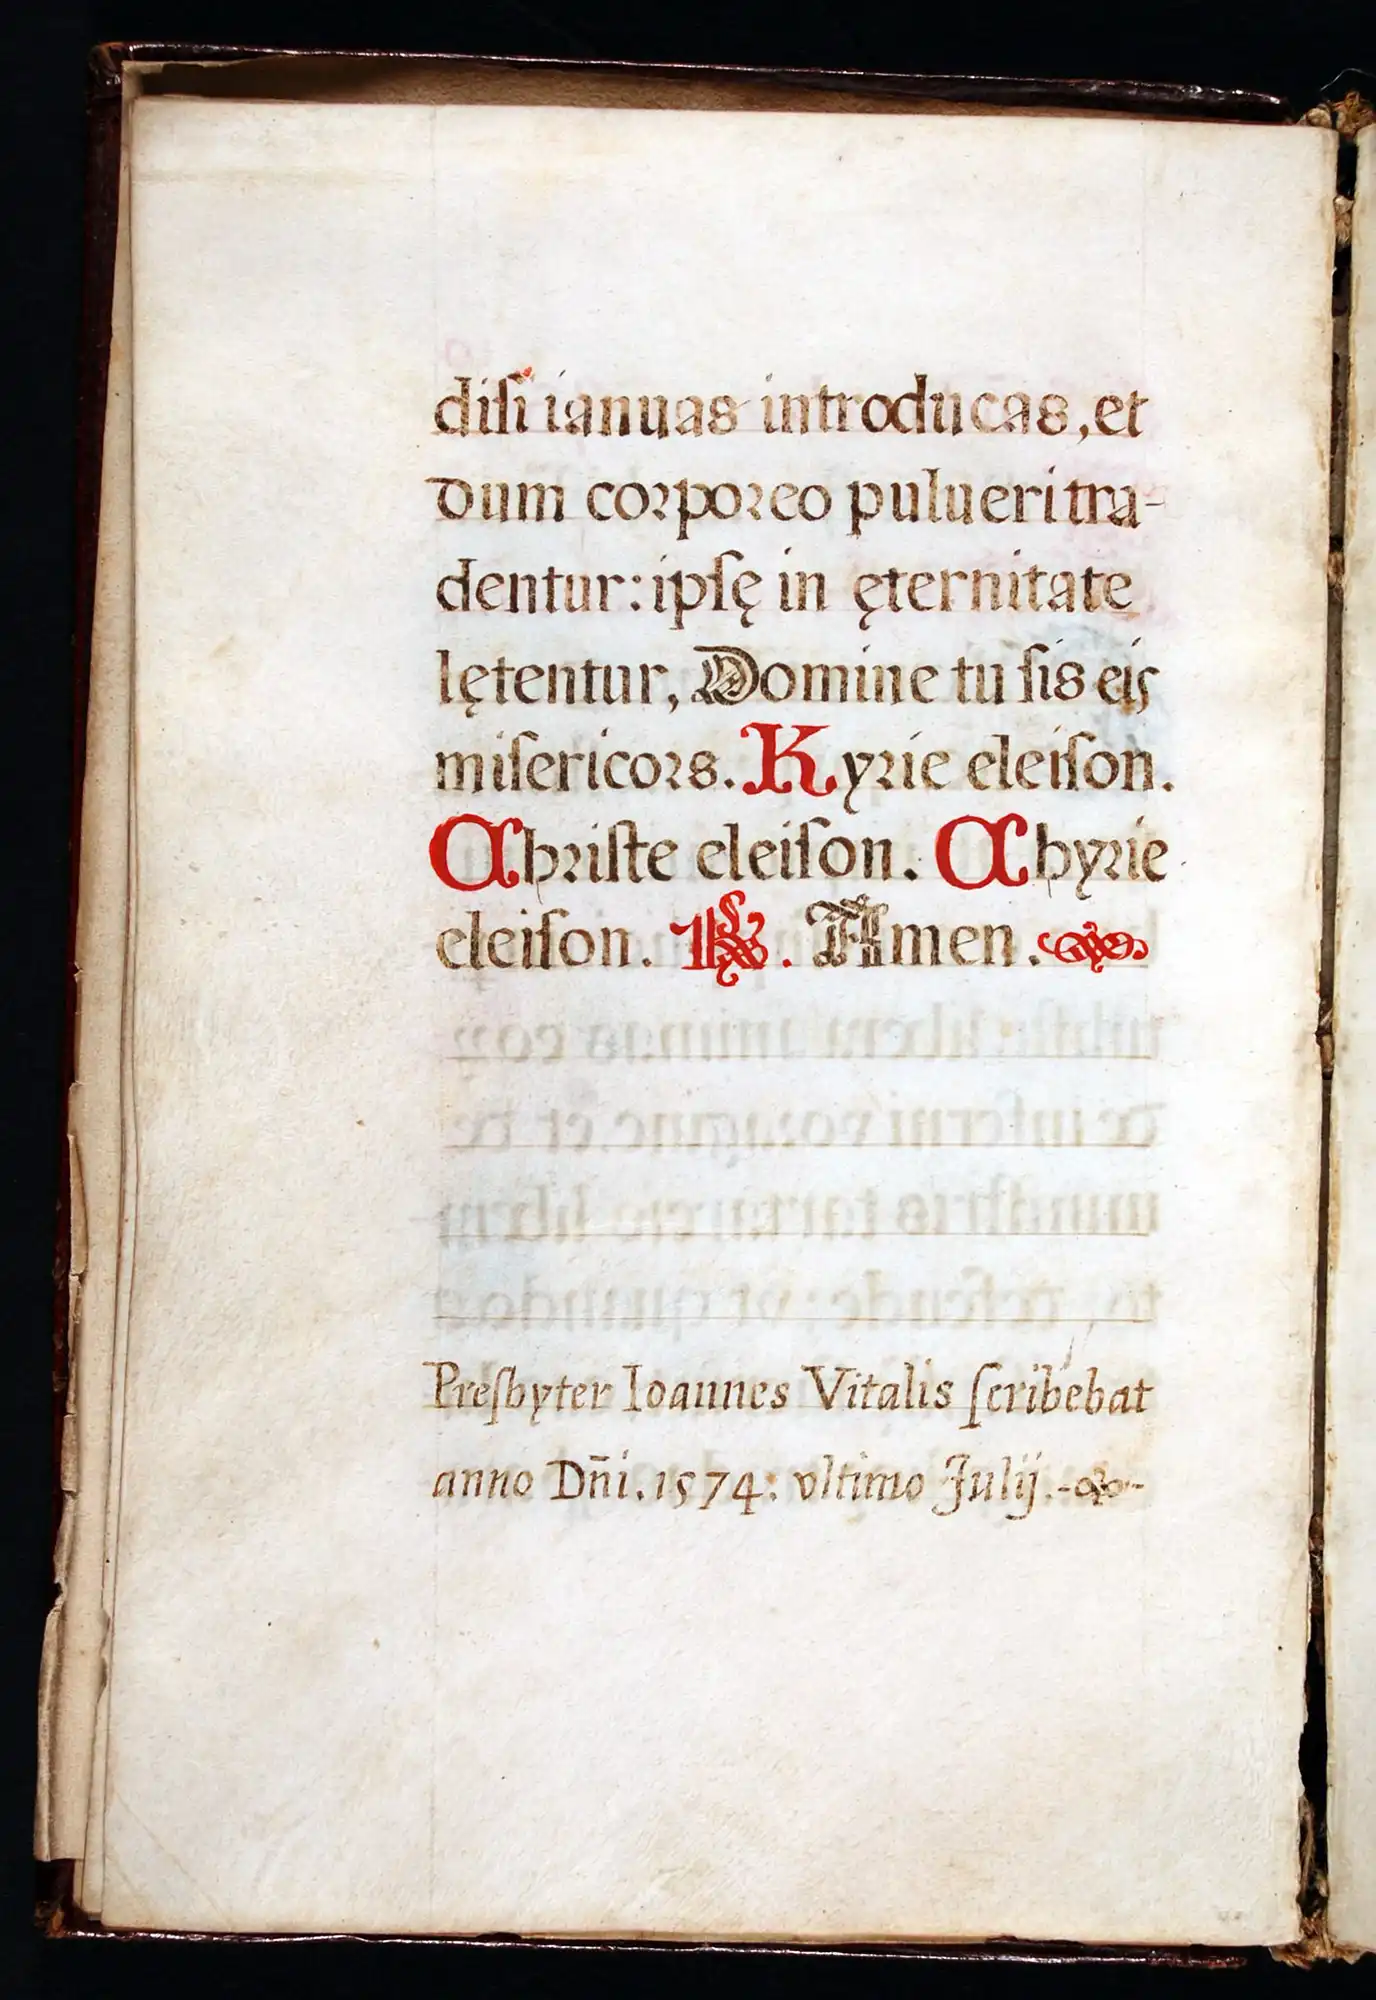 diſi ianuas introducas, et
dum corporeo pulueri tra-
dentur: ipſę in ęternitate
lętentur, Domine tu ſis eis
miſericors. Kyrie eleiſon.
Chriſte eleiſon. Chyrie
eleiſon. ℟. Amen.
Preſbyter Ioannes Vitalis ſcribebat
anno Dñi. 1574: vltimo Julij.